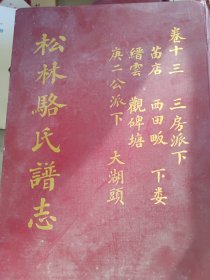 卷十三 三房派下
苗店 西田畈 下娄
缙雲 觀碑塘
庚二公派下 大湖頭
松林駱氏譜志